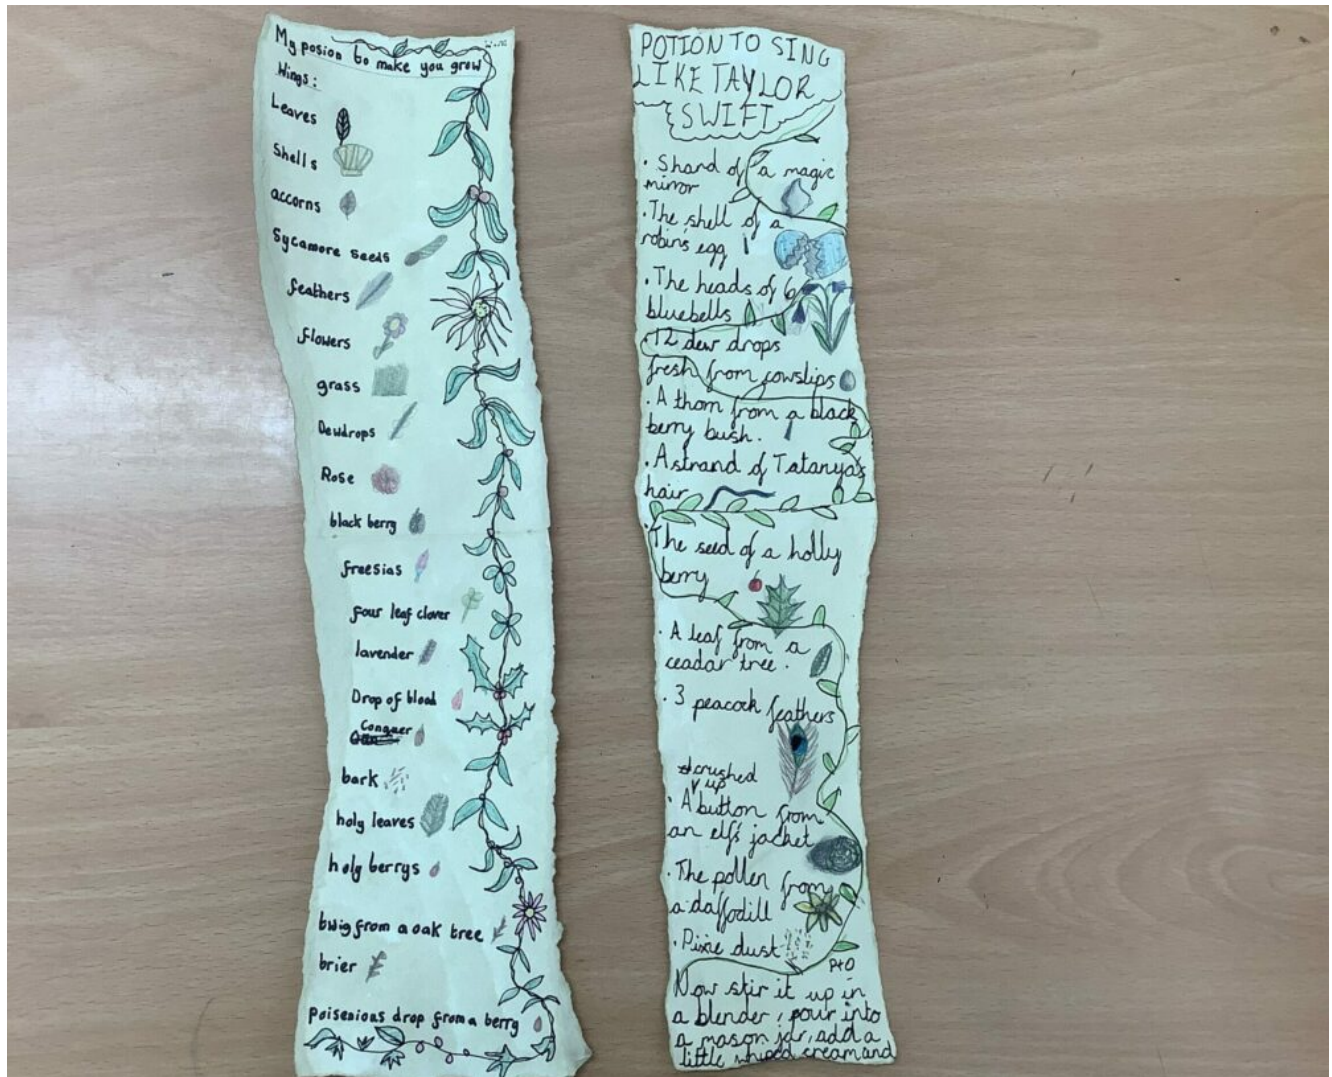 My posion to make you grow
Wings:
Leaves
Shells
accorns
Sycamore seeds
feathers
flowers
grass
Dewdrops
Rose
black berry
freesias
four leaf clover
lavender
Drop of blood
Conquer
bark
holy leaves
holy berrys
twig from a oak tree
brier
Poisenious drop from a berry
POTION TO SING
LIKE TAYLOR
SWIFT
· Shard of a magic
mirror
· The shell of a
robin's egg
· The heads of 6
bluebells
· 12 dew drops
fresh from cowslips
· A thorn from a black
berry bush.
· A strand of Tatanya's
hair
· The seed of a holly
berry
· A leaf from a
ceadar tree.
· 3 peacock feathers
crushed
up
· A button from
an elf's jacket
· The pollen from
a daffodill
· Pixie dust
PtO
Now stir it up in
a blender, pour into
a mason jar, add a
little whiped cream and